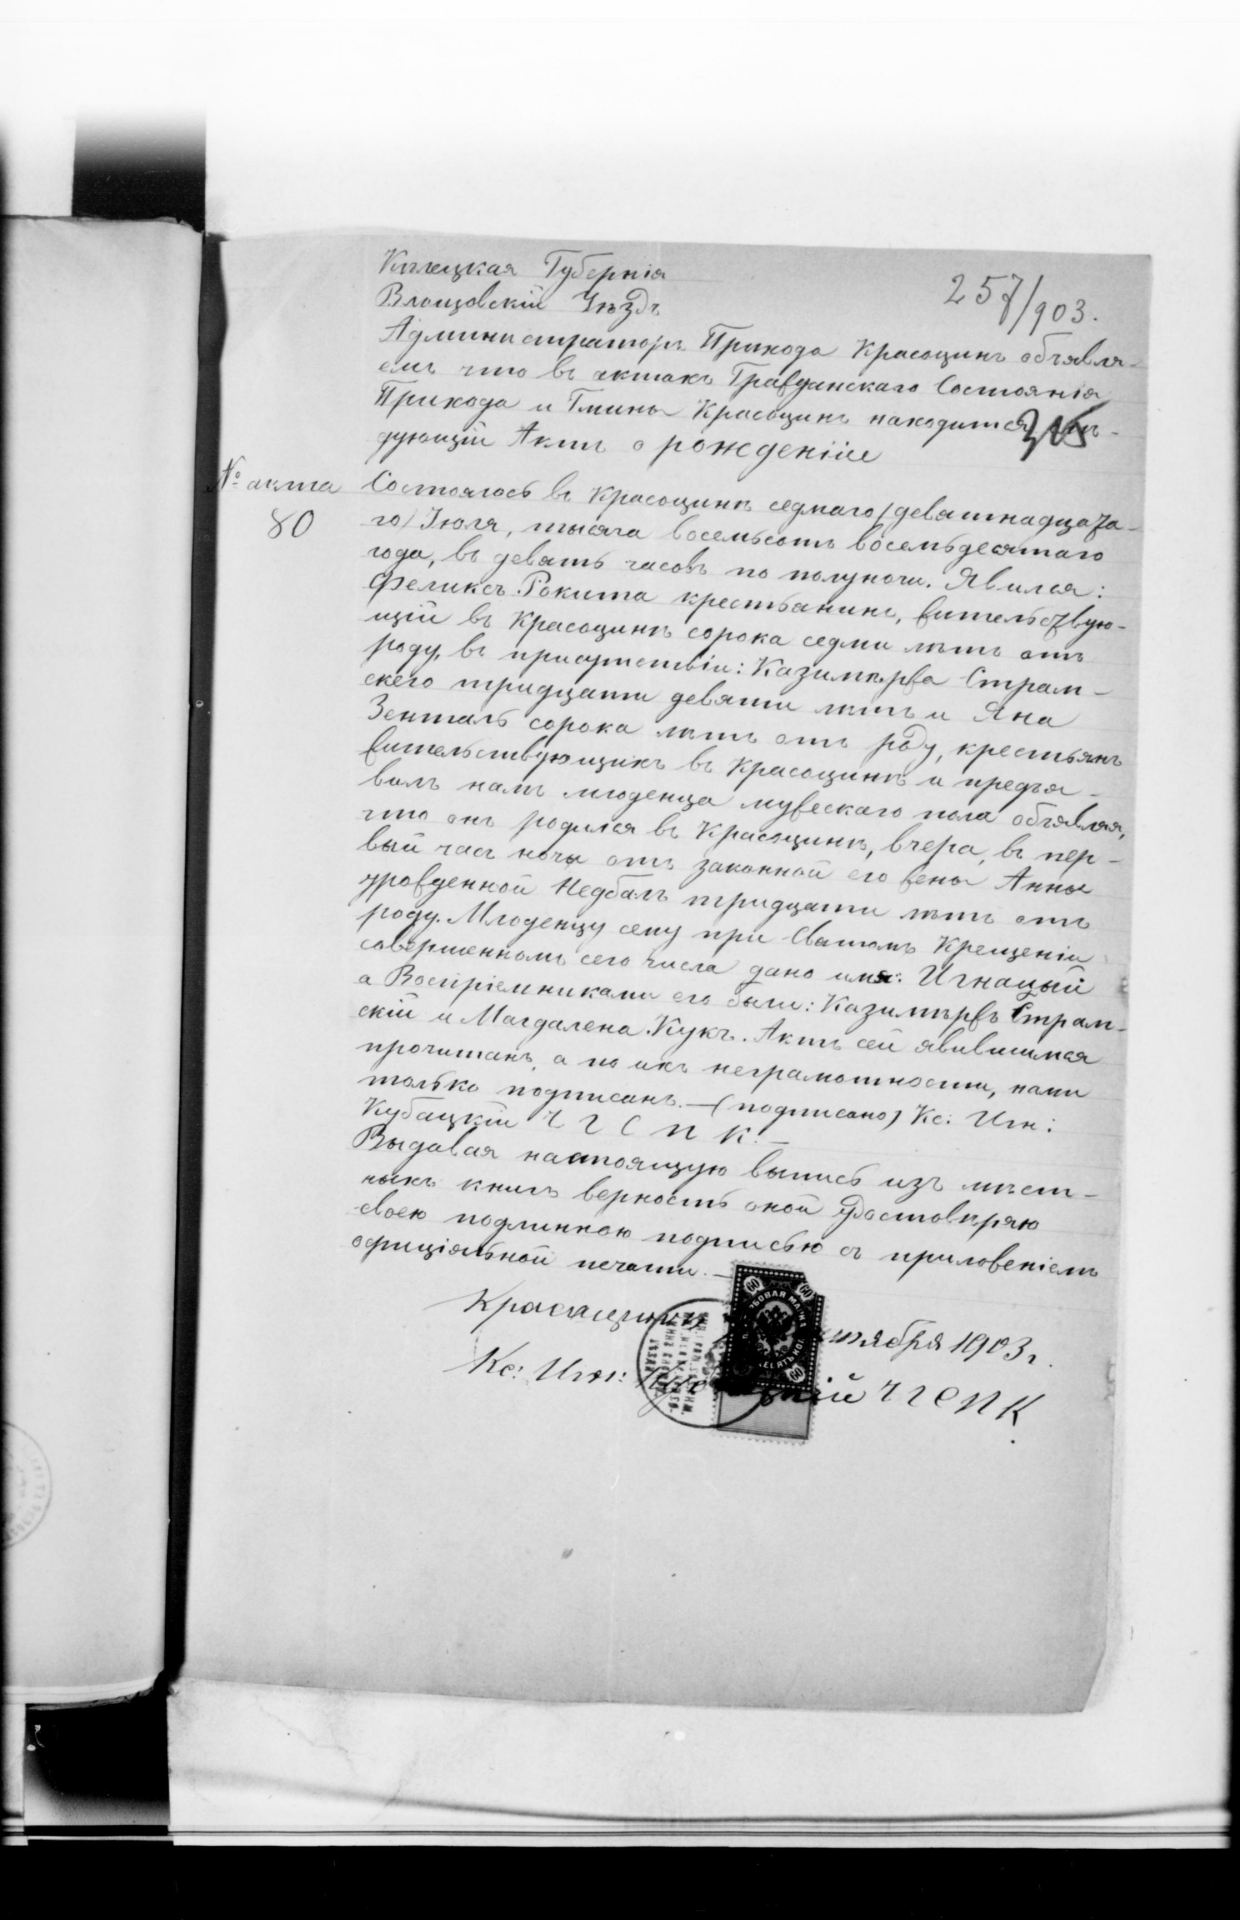 Кѣлецкая Губернія
Влощовскій Уѣздъ
257/903.
Администраторъ Прихода Красоцинъ объявля-
емъ что въ актахъ Гражданскаго Состоянія
Прихода и Гмины Красоцинъ находится
дующій Актъ о рожденіи
№ акта
80
Состоялось въ Красоцинѣ седмаго/девятнадцата-
го/ Іюля, тысяча восемьсотъ восемьдесятаго
года, въ девять часовъ по полуночи. Явился:
Феликсъ Рокита крестьянинъ, жительствую-
щій въ Красоцинѣ сорока седми лѣтъ отъ
роду, въ присутствіи: Казимѣржа Страм-
скего тридцати девяти лѣтъ и Яна
Зенталь сорока лѣтъ отъ роду, крестьянъ
жительствующихъ въ Красоцинѣ и предъя-
вилъ намъ младенца мужескаго пола объявляя,
что онъ родился въ Красоцинѣ, вчера, въ пер-
вый часъ ночи отъ законной его жены Анны
урожденной Недбалъ тридцати лѣтъ отъ
роду. Младенцу сему при Святомъ Крещеніи
совершенномъ сего числа дано имя: Игнацый
а Воспріемниками его были: Казимѣржъ Страм-
скій и Магдалена Кукъ. Актъ сей явившимся
прочитанъ, а по ихъ неграмотности, нами
только подписанъ. — (подписано) Кс: Игн:
Кубацкій Ч Г С П К. —
Выдавая настоящую выпись изъ мѣст-
ныхъ книгъ верность оной удостовѣряю
своею подлинною подписью съ приложеніемъ
официяльной печати. —
Красоцинъ тября 1903 г.
Кс: Игн: цкій Ч Г С П К
60
60
60